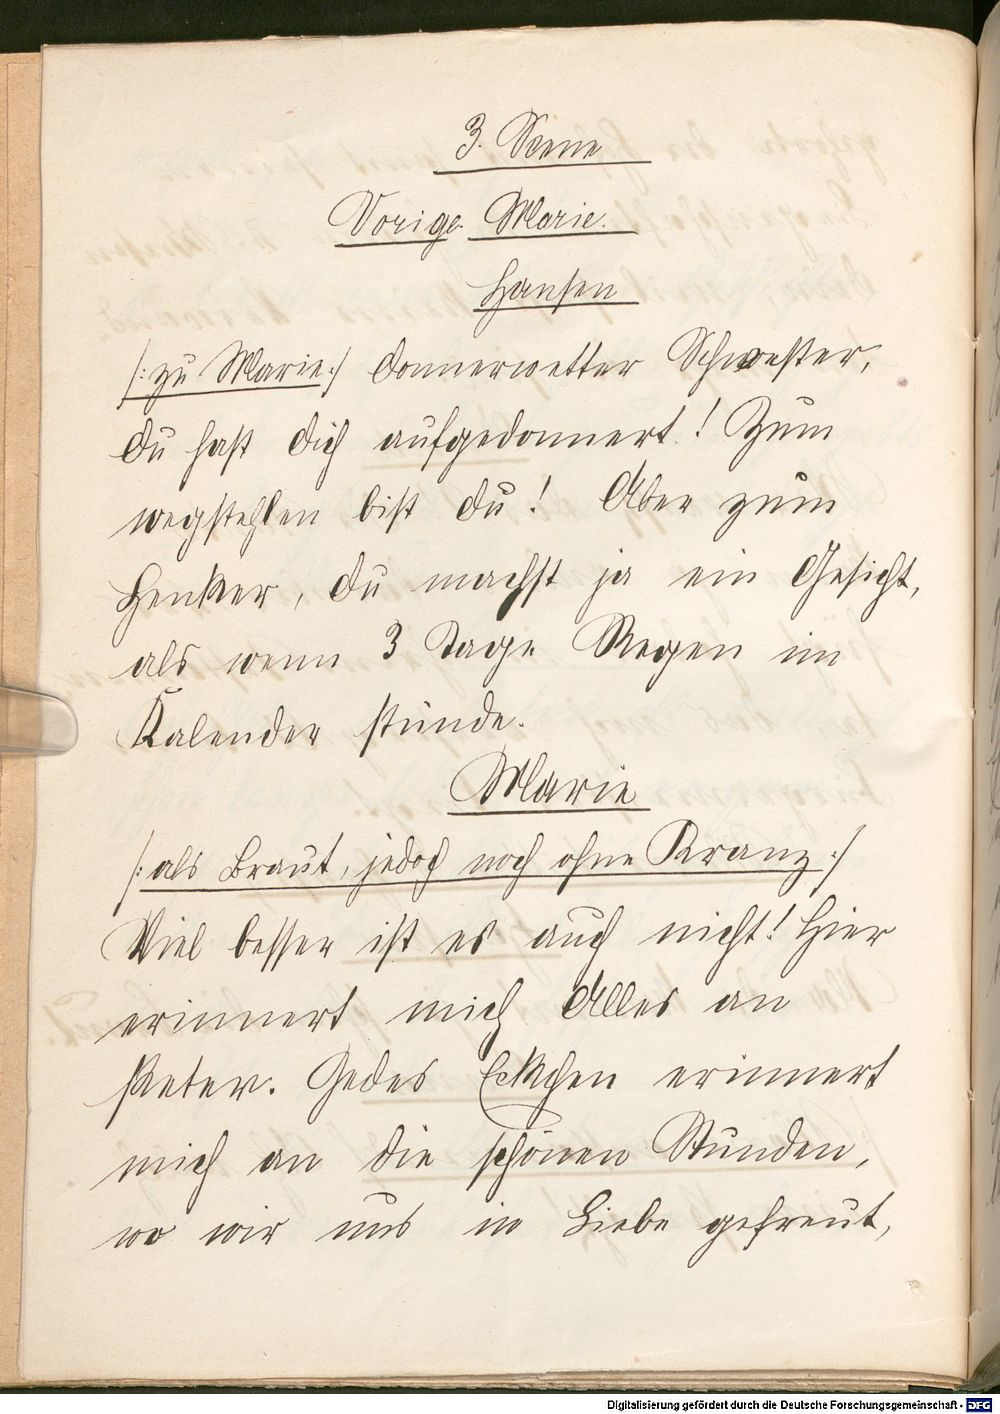 3. Scene
Vorige. Marie.
Hansen
/: zu Marie :/ Donnerwetter Schwester,
du hast dich aufgedonnert! Zum
wegstehlen bist du! Aber zum
Henker, du machst ja ein Gesicht,
als wenn 3 Tage Regen im
Kalender stünde.
Marie
/: als Braut, jedoch noch ohne Kranz :/
Viel besser ist es auch nicht! Hier
erinnert mich Alles an
Peter. Jedes Eckchen erinnert
mich an die schönen Stunden,
wo wir uns in Liebe gefreut,
Digitalisierung gefördert durch die Deutsche Forschungsgemeinschaft - DFG